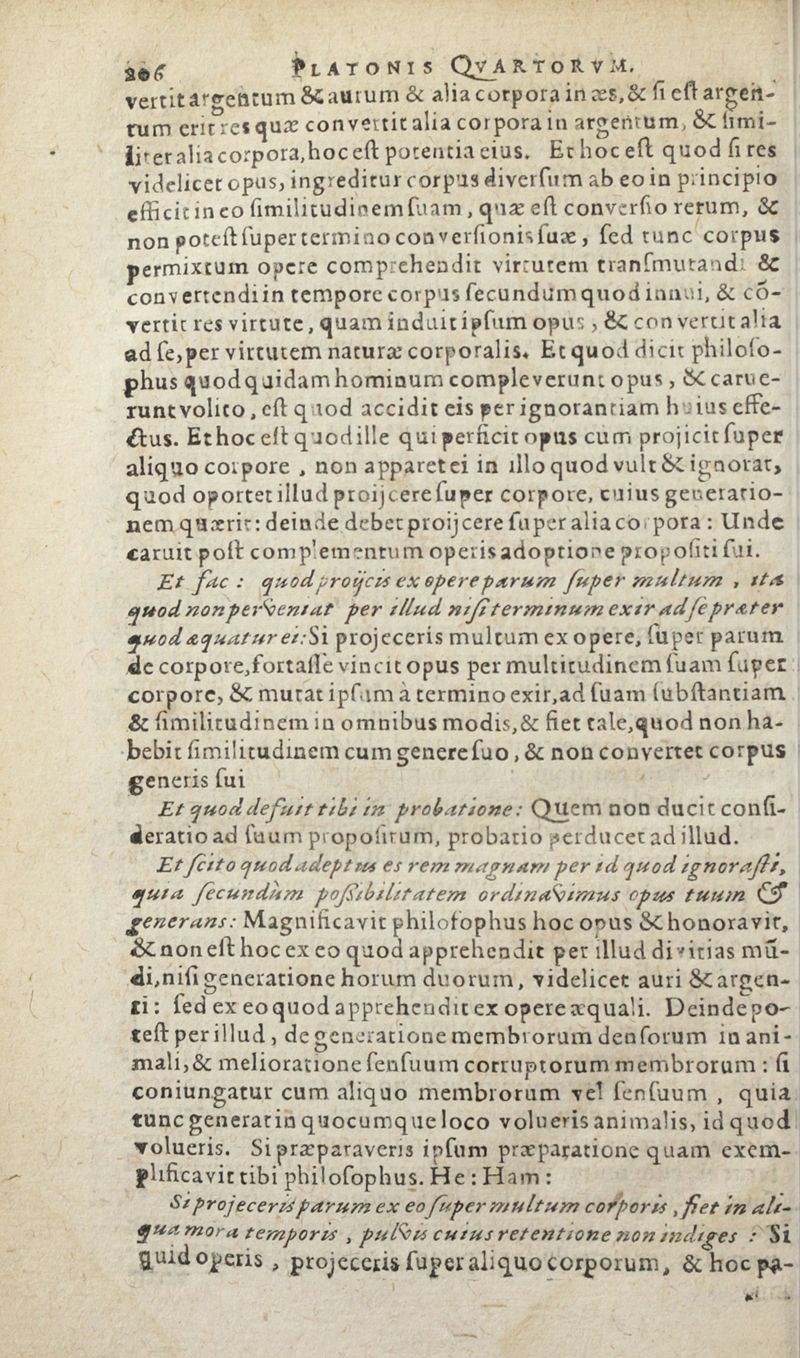 206 PLATONIS QVARTORVM.
vertit argentum & aurum & alia corpora in æs, & si est argen-
tum erit res quæ convertit alia corpora in argentum, & simi-
liter alia corpora, hoc est potentia eius. Et hoc est quod si res
videlicet opus, ingreditur corpus diversum ab eo in principio
efficit in eo similitudinem suam, quæ est conversio rerum, &
non potest super termino conversionis suæ, sed tunc corpus
permixtum opere comprehendit virtutem transmutandi &
convertendi in tempore corpus secundum quod innui, & cō-
vertit res virtute, quam induit ipsum opus, & convertit alia
ad se, per virtutem naturæ corporalis. Et quod dicit philoso-
phus quod quidam hominum compleverunt opus, & carue-
runt volito, est quod accidit eis per ignorantiam huius effe-
ctus. Et hoc est quod ille qui perficit opus cum projicit super
aliquo corpore, non apparet ei in illo quod vult & ignorat,
quod oportet illud proijcere super corpore, cuius generatio-
nem quærit: deinde debet proijcere super alia corpora: Unde
caruit post complementum operis adoptione propositi sui.
Et fac: quod proijcis ex opere parum super multum, ita
quod non perveniat per illud nisi terminum exir ad se præter
quod æquatur ei: Si projeceris multum ex opere, super parum
de corpore, fortasse vincit opus per multitudinem suam super
corpore, & mutat ipsum à termino exir, ad suam substantiam
& similitudinem in omnibus modis, & fiet tale, quod non ha-
bebit similitudinem cum genere suo, & non convertet corpus
generis sui
Et quod defuit tibi in probatione: Quem non ducit consi-
deratio ad suum propositum, probatio perducet ad illud.
Et scito quod adeptus es rem magnam per id quod ignorasti,
quia secundum possibilitatem ordinavimus opus tuum &
generans: Magnificavit philosophus hoc opus & honoravit,
& non est hoc ex eo quod apprehendit per illud divitias mū-
di, nisi generatione horum duorum, videlicet auri & argen-
ti: sed ex eo quod apprehendit ex opere æquali. Deinde po-
test per illud, de generatione membrorum densorum in ani-
mali, & melioratione sensuum corruptorum membrorum: si
coniungatur cum aliquo membrorum vel sensuum, quia
tunc generat in quocumque loco volueris animalis, id quod
volueris. Si præparaveris ipsum præparatione quam exem-
plificavit tibi philosophus. He: Ham:
Si projeceris parum ex eo super multum corporis, fiet in ali-
qua mora temporis, pulvis cuius retentione non indiges: Si
quid operis, projeceris super aliquo corporum, & hoc pa-